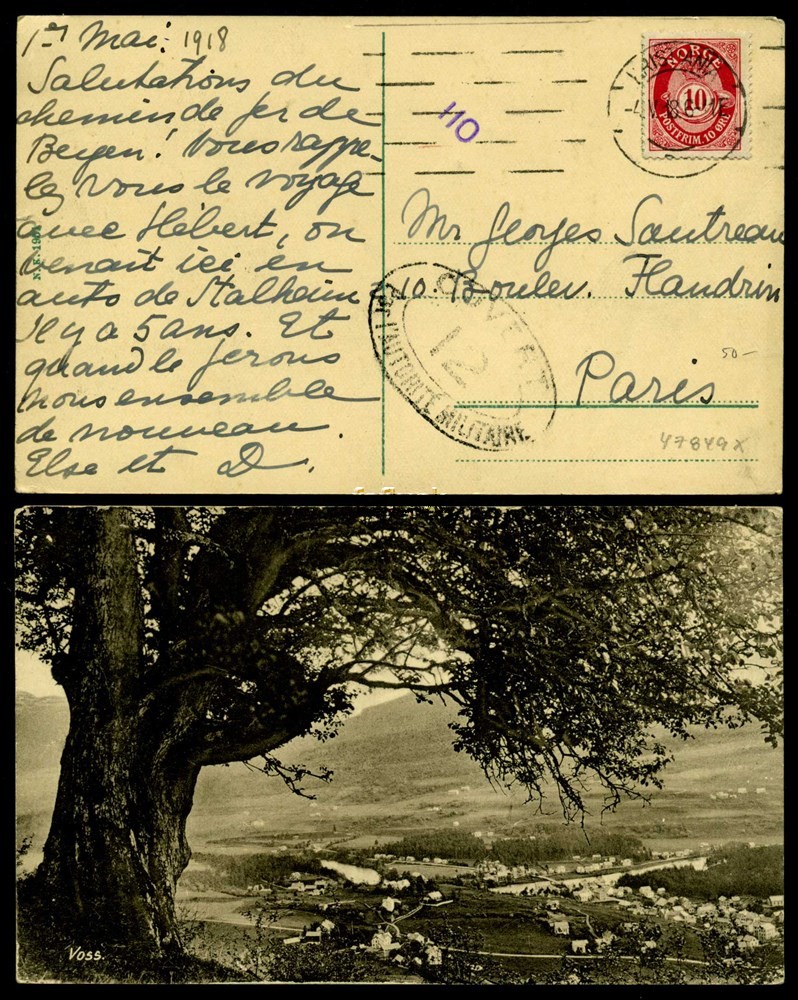 1er Mai: 1918
Salutations du
chemin de fer de
Bergen! Vous rappe-
lez vous le voyage
avec Hébert, on
venait ici en
auto de Stalheim
Il y a 5 ans. Et
quand le ferons
nous ensemble
de nouveau.
Else et D.
NORGE
10
POSTFRIM. 10 ØRE
110
Mr Georges Sautreau
10. Boulev. Flandrin
Paris
OUVERT
12
PAR L'AUTORITÉ MILITAIRE
50-
47849X
Voss.